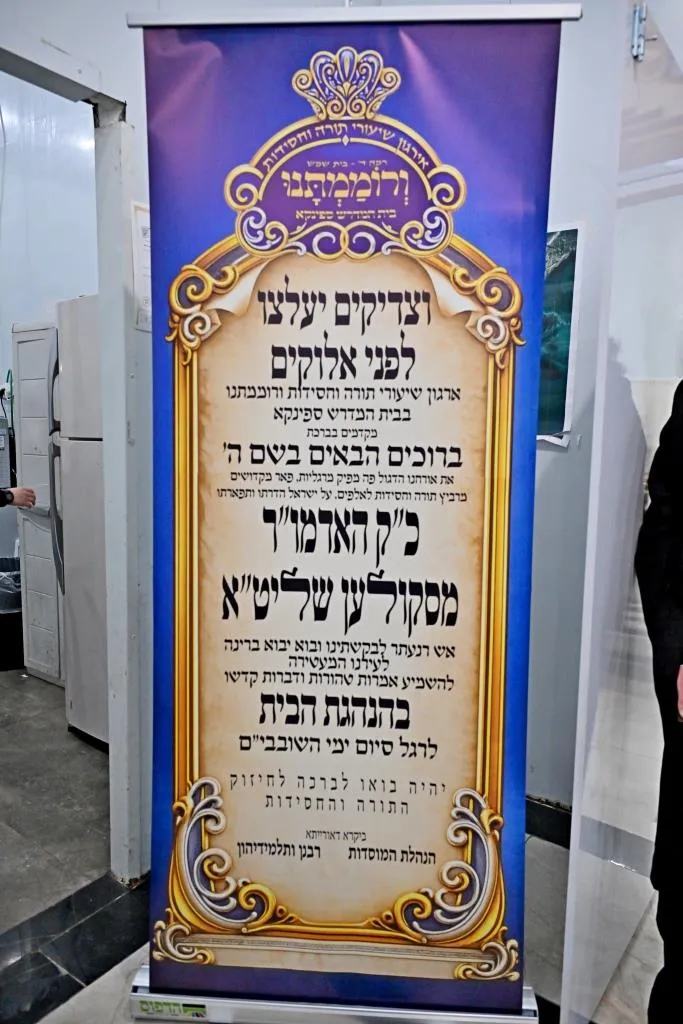 ארגון שיעורי תורה וחסידות
רמה ד' - בית שמש
וְרוֹמַמְתָּנוּ
בית המדרש ספינקא
וצדיקים יעלצו
לפני אלוקים
ארגון שיעורי תורה וחסידות ורוממתנו
בבית המדרש ספינקא
מקדמים בברכת
ברוכים הבאים בשם ה'
את אורחנו הדגול פה מפיק מרגליות, פאר מקדושים
מרביץ תורה וחסידות לאלפים, על ישראל הדרתו ותפארתו
כ"ק האדמו"ר
מסקולען שליט"א
אש רנעתר לבקשתינו ובוא יבוא ברינה
לעילנו המעטירה
להשמיע אמרות טהורות ודברות קדשו
בהנהגת הבית
לרגל סיום ימי השובבי"ם
יהיה בואו לברכה לחיזוק
התורה והחסידות
ביקרא דאורייתא
הנהלת המוסדות רבנן ותלמידיהון
הדפוס